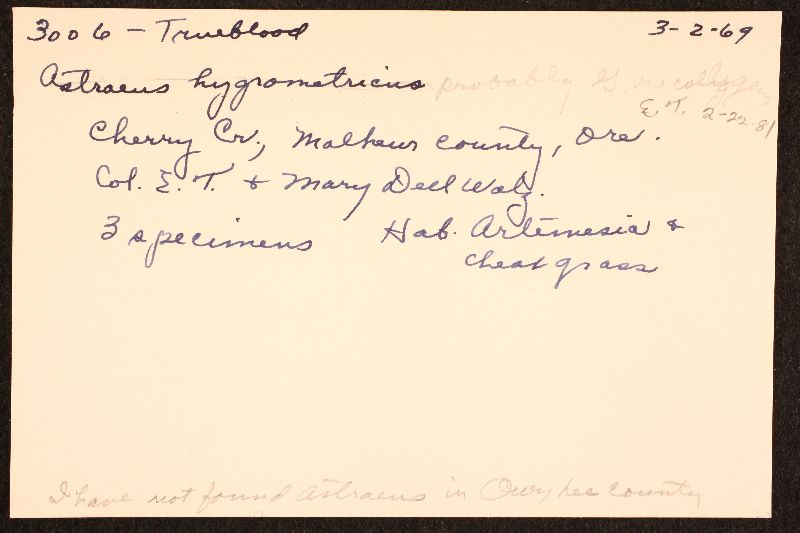 3006 - Trueblood 3-2-69
Astraeus hygrometricus probably G. recolligens
E. T. 2-22-81
Cherry Cr., Malheur county, Ore.
Col. E. T. & Mary Dell Walz.
3 specimens Hab. Artemesia &
cheat grass
I have not found Astraeus in Owyhee county